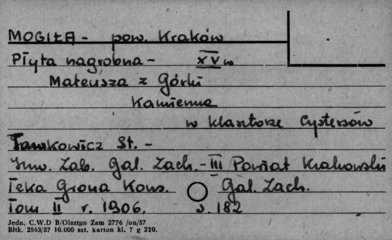 MOGIŁA - pow. Kraków
Płyta nagrobna - XV w
Mateusza z Górki
Kamienna
w klasztorze Cystersów
Tomkowicz St. -
Inw. Zab. Gal. Zach. - III Powiat Krakowski
Teka Grona Kons. Gal. Zach.
Tom II r. 1906. s. 182
Jedn. C.W.D B/Olsztyn Zam 2776 /on/57
Bltk. 2563/57 10.000 szt. karton kl. 7 g 220.